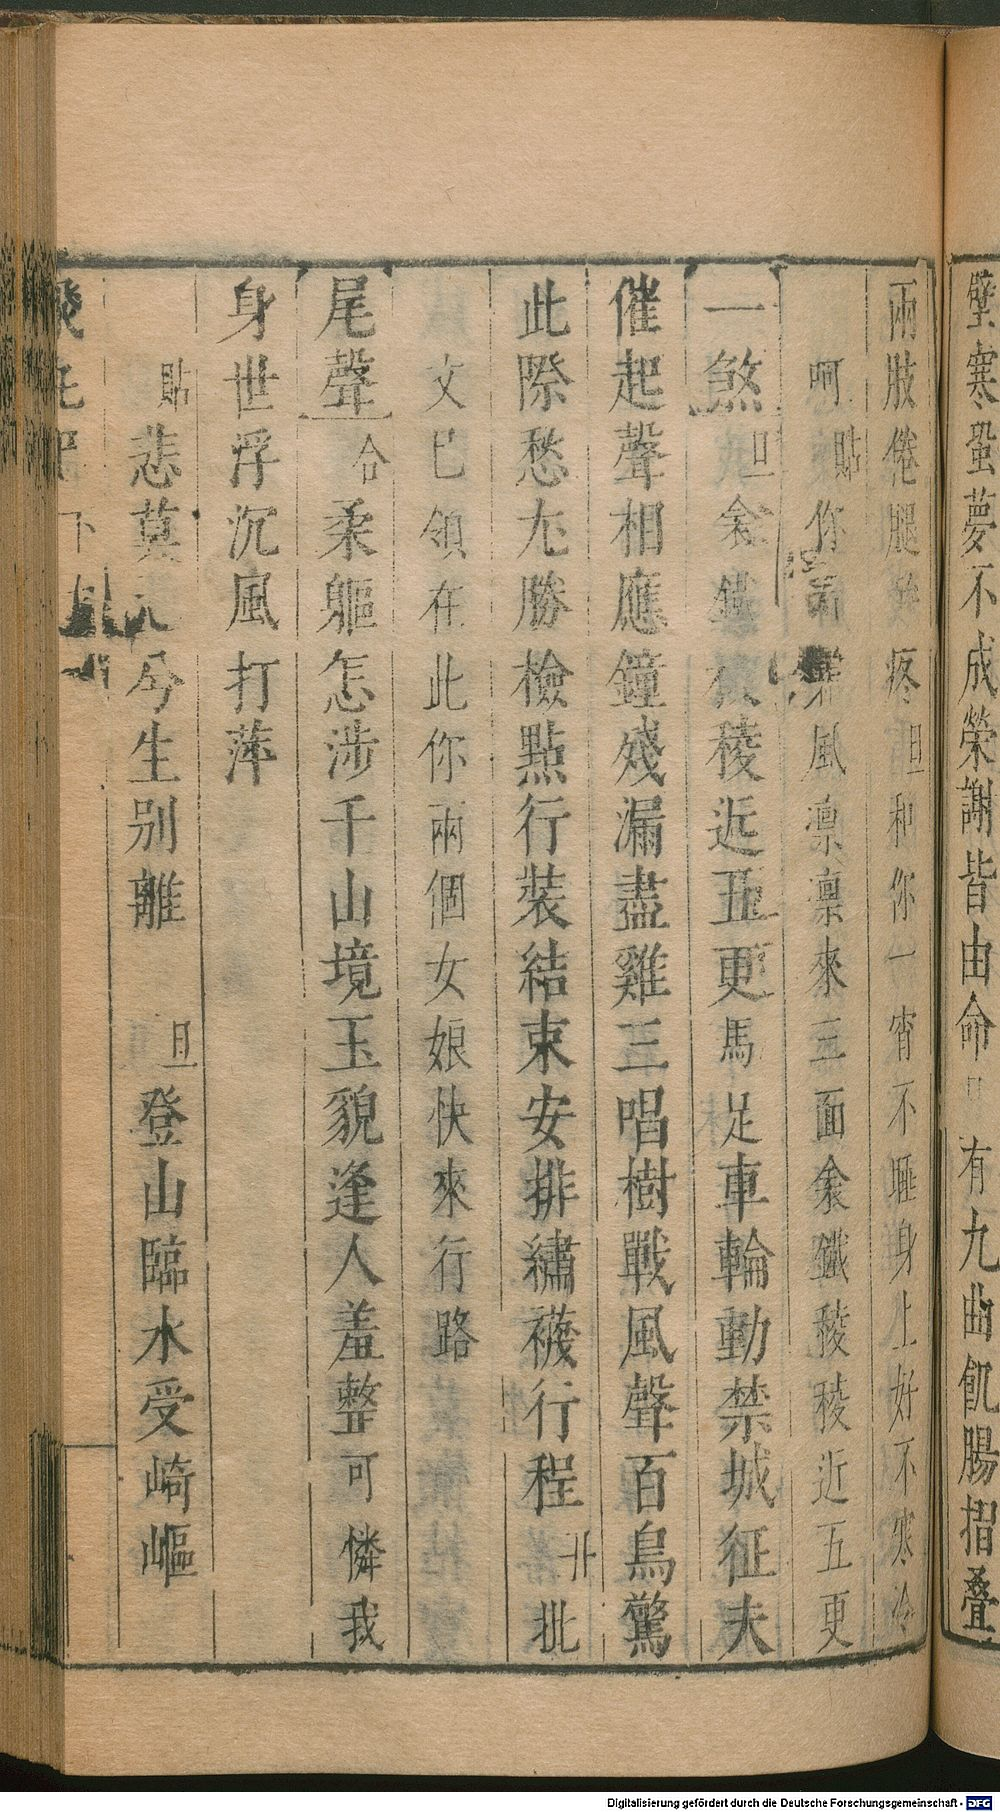 蛩寒蛩夢不成榮謝皆由命 有九曲飢腸摺叠
兩肢倦腿 疼旦和你一宵不睡身上好不寒冷
呵貼你 風凛凛來三面衾鐵稜稜近五更
一煞旦衾鐵 稜近五更馬足車輪動禁城征夫
催起聲相應鐘殘漏盡雞三唱樹戰風聲百鳥驚
此際愁尤勝檢點行裝結束安排繡襪行程 批
文已領在此你兩個女娘快來行路
尾聲合柔軀怎涉千山境玉貌逢人羞整可憐我
身世浮沉風打萍
貼悲莫 兮生別離 旦登山臨水受崎嶇
下
Digitalisierung gefördert durch die Deutsche Forschungsgemeinschaft - DFG